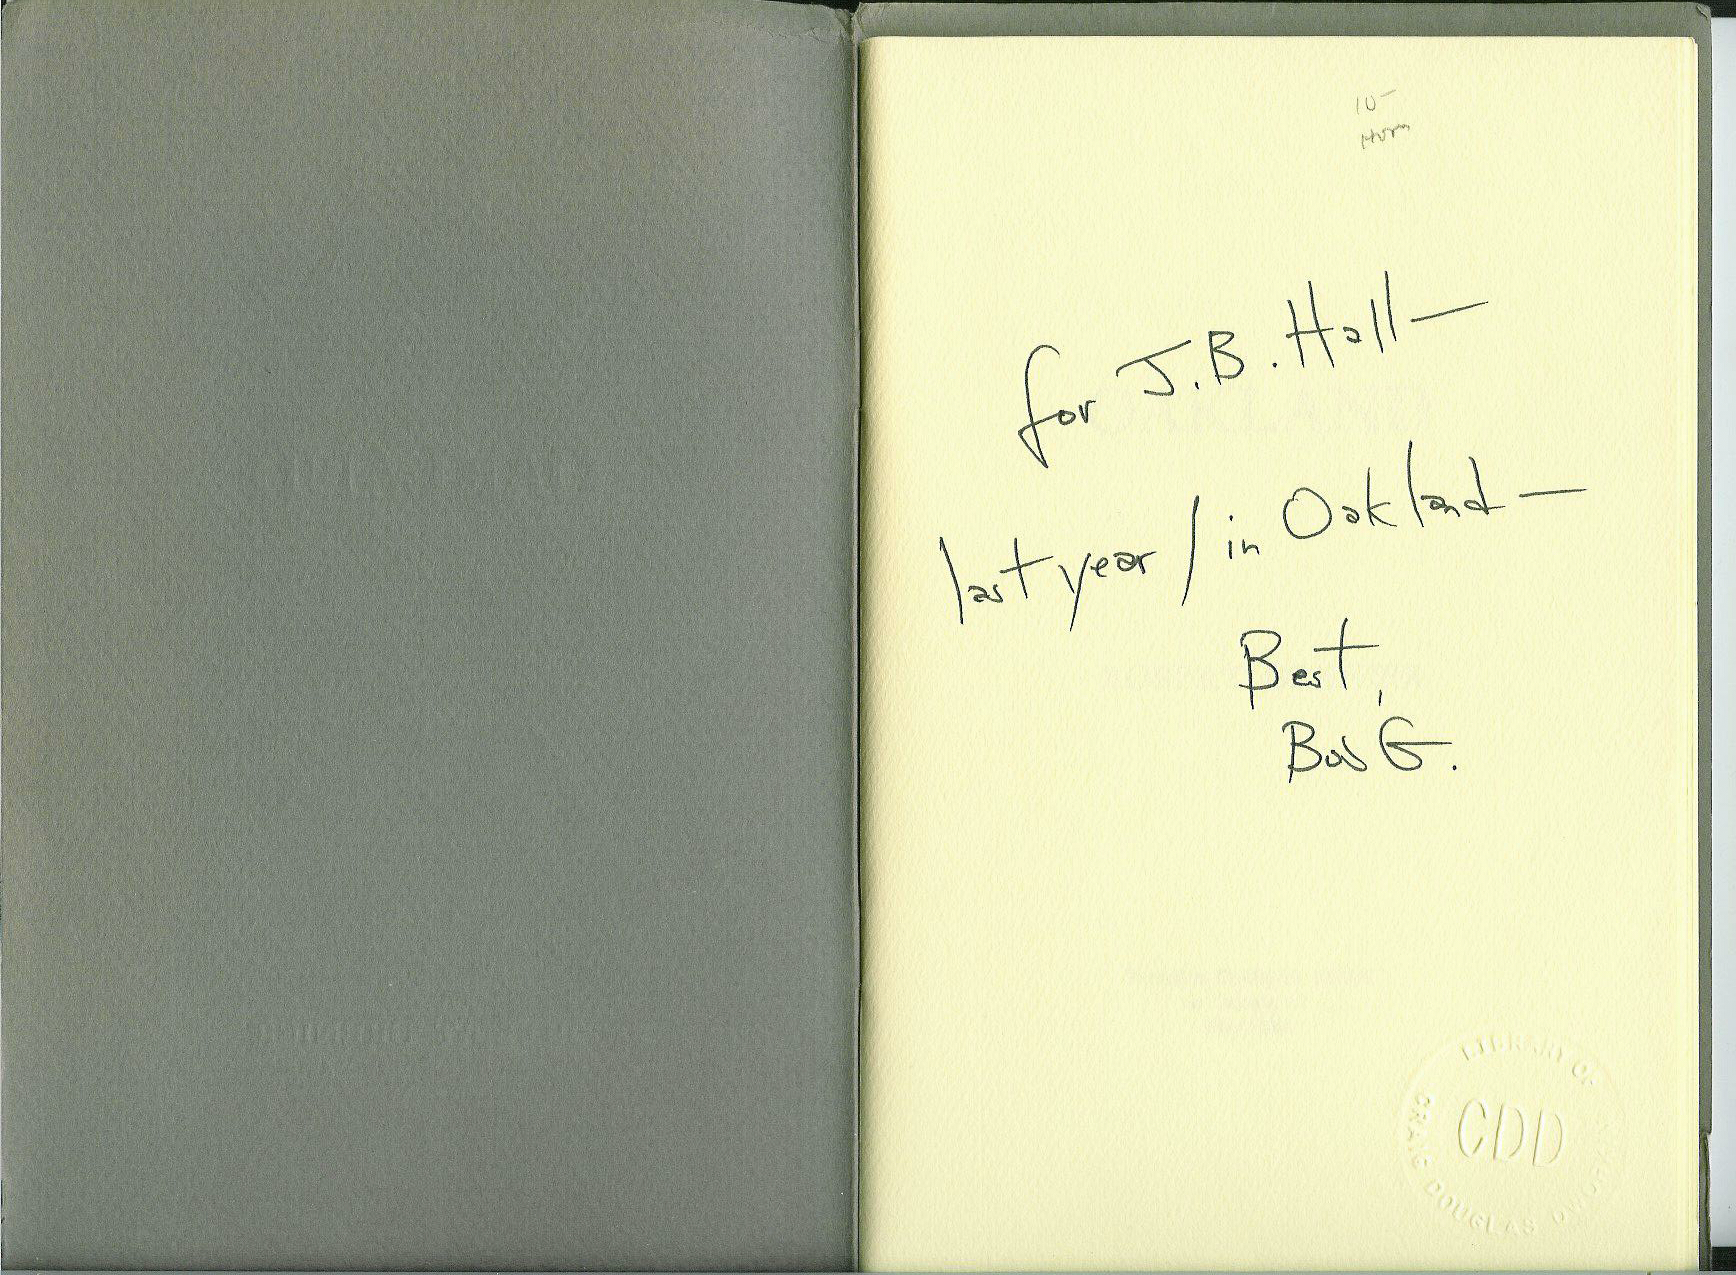 10-
for J.B. Hall—
last year / in Oakland—
Best,
Bob G.
LIBRARY OF
CRAIG DOUGLAS DWORKIN
CDD